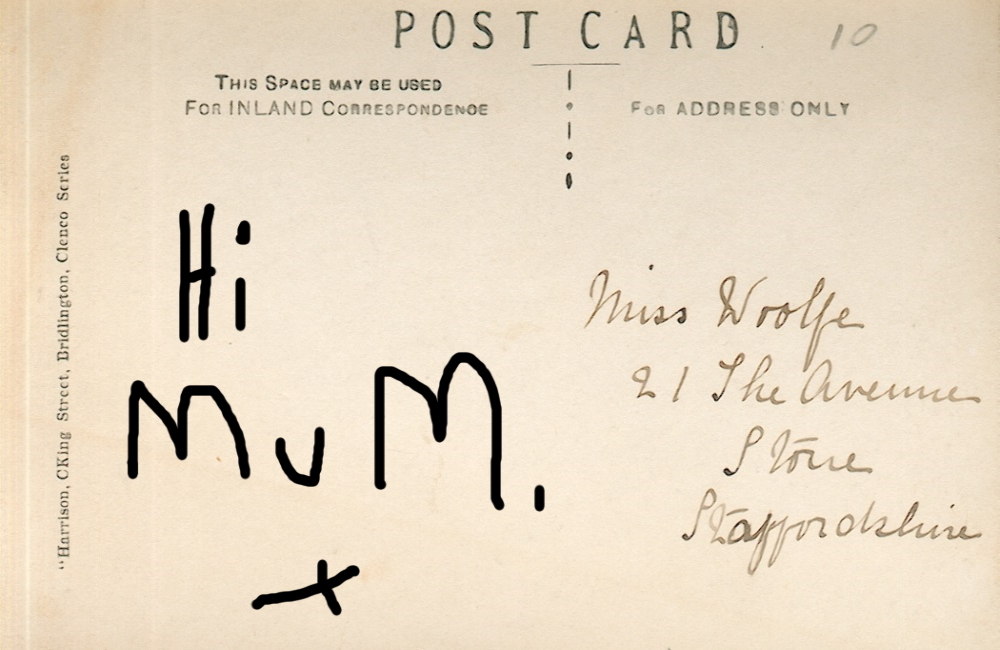 POST CARD
10
THIS SPACE MAY BE USED
FOR INLAND CORRESPONDENCE
FOR ADDRESS ONLY
"Harrison, CKing Street, Bridlington, Clenco Series
Hi
MuM.
x
Miss Woolfe
21 The Avenue
Stone
Staffordshire